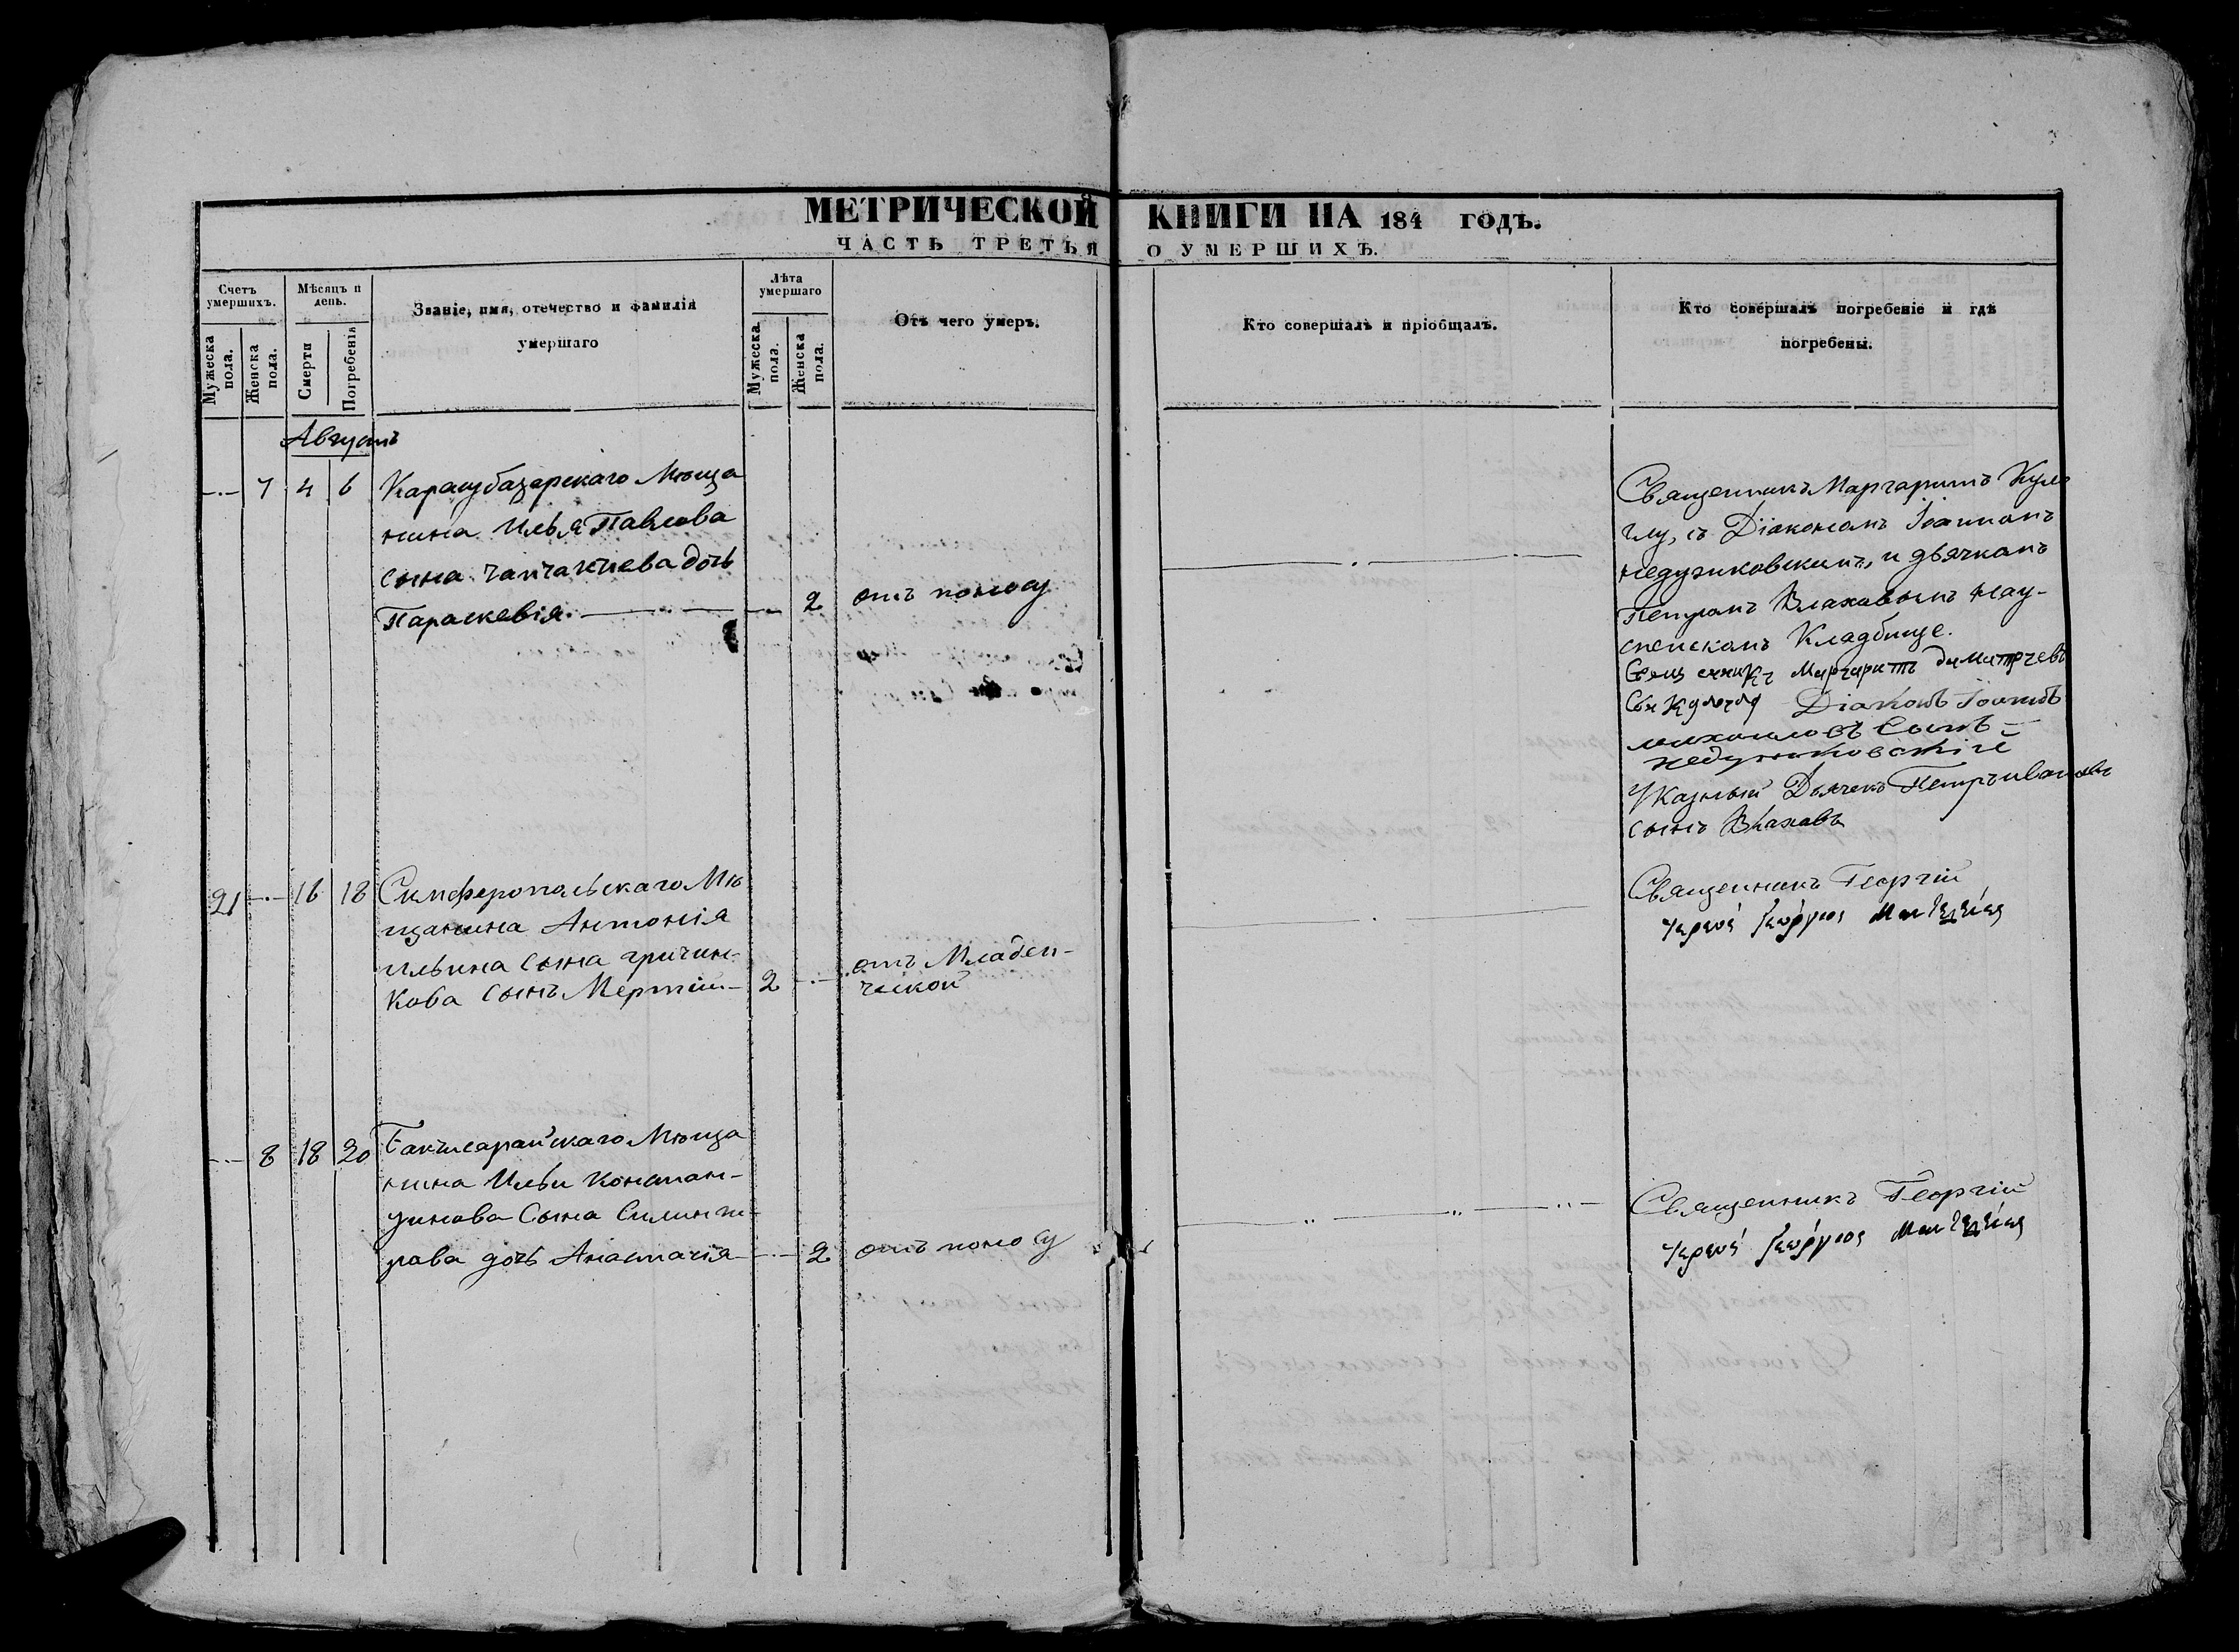 МЕТРИЧЕСКОЙ КНИГИ НА 184 ГОДЪ.
ЧАСТЬ ТРЕТЬЯ О УМЕРШИХЪ.
Счетъ умершихъ.
Мужеска пола.
Женска пола.
Мѣсяцъ и день.
Смерти
Погребенія
Званіе, имя, отечество и фамилія
умершаго
Лѣта умершаго
Мужеска пола.
Женска пола.
Отъ чего умеръ.
Кто совершалъ и пріобщалъ.
Кто совершалъ погребеніе и гдѣ
погребены.
Августъ
7 4 6 Карасубазарскаго Мѣща
нина Илья Павлова
сына дочь
Параскевія. 2 отъ поносу
Священникъ Маргаритъ
съ Діакономъ Іоанномъ
недузиковскимъ, и дьячкомъ
Петромъ Влаховымъ
Кладбище.
Маргаритъ
Діаконъ Іоаннъ
Сынъ
Указный Дьячекъ Петръ Ивановъ
сынъ Влаховъ
21 16 18 Симферопольскаго Мѣ
щанина Антонія
Ильина сына
кова сынъ 2 отъ Младен-
ческой
Священникъ Георгій
Γεώργιος
8 18 20 Бакчисарайскаго Мѣща
нина Ильи Констан-
тинова Сына
рова дочь Анастасія 2 отъ поносу
Священникъ Георгій
Γεώργιος